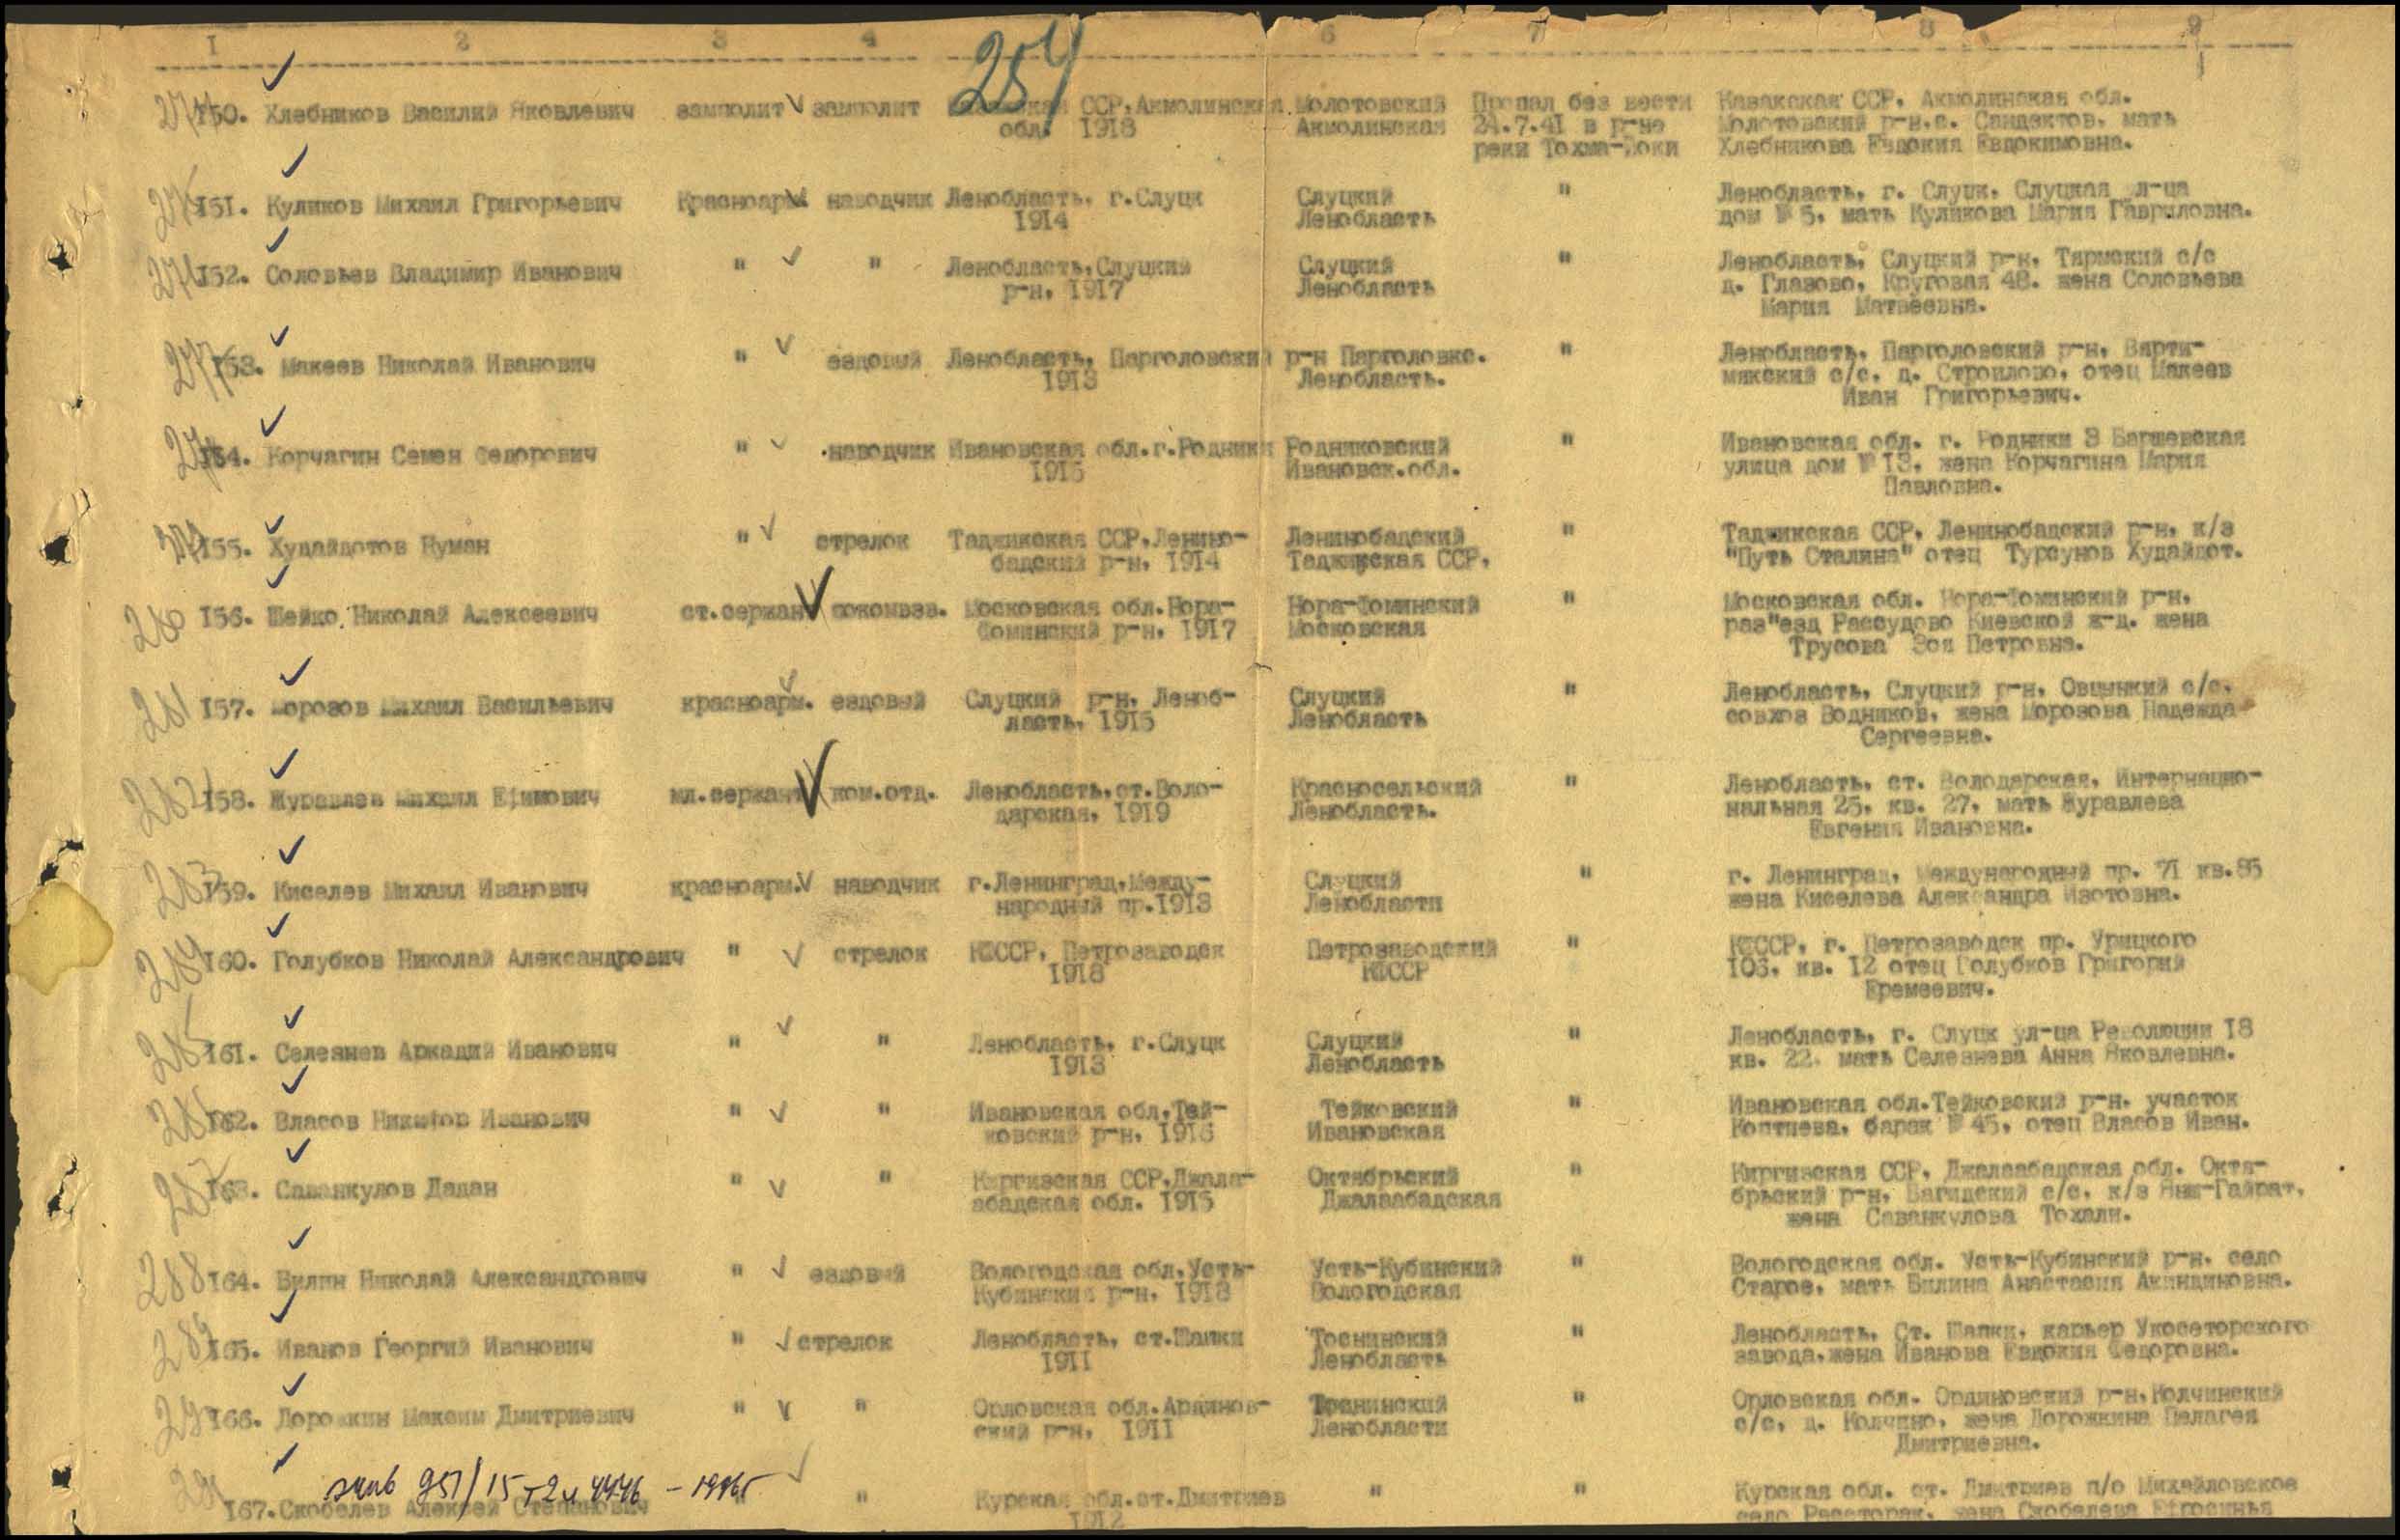 1 2 3 4 6 7 8 9
254
274 150. Хлебников Василий Яковлевич замполит замполит ССР, Акмолинская Молотовский Пропал без вести Казакская ССР, Акмолинская обл.
обл. 1918 Акмолинская 24.7.41 в р-не Молотовский р-н, с. Сандектов, мать
реки Тохма-Йоки Хлебникова Евдокия Евдокимовна.
275 151. Куликов Михаил Григорьевич Красноарм. наводчик Ленобласть, г.Слуцк Слуцкий " Ленобласть, г. Слуцк, Слуцкая ул-ца
1914 Ленобласть дом № 5, мать Куликова Мария Гавриловна.
276 152. Соловьев Владимир Иванович " " Ленобласть,Слуцкий Слуцкий " Ленобласть, Слуцкий р-н, Тярмский с/с
р-н, 1917 Ленобласть д. Глазово, Круговая 48. жена Соловьева
Мария Матвеевна.
277 153. Макеев Николай Иванович " ездовый Ленобласть, Парголовский р-н Парголовс. " Ленобласть, Парголовский р-н, Вартемякский с/с, д. Строилово, отец Макеев
1913 Ленобласть.
Иван Григорьевич.
278 154. Корчагин Семен Федорович " наводчик Ивановская обл.г.Родники Родниковский " Ивановская обл. г. Родники 3 Баршевская
1915 Ивановск.обл. улица дом № 13, жена Корчагина Мария
Павловна.
279 155. Худайдотов Нуман " стрелок Таджикская ССР,Ленино- Ленинобадский " Таджикская ССР, Ленинобадский р-н, к/з
бадский р-н, 1914 Таджикская ССР, "Путь Сталина" отец Турсунов Худайдот.
280 156. Шейко Николай Алексеевич ст.сержант помкомвзв. Московская обл.Нора- Нора-Фоминский " Московская обл. Нора-Фоминский р-н,
Фоминский р-н, 1917 Московская раз"езд Рассудово Киевской ж-д. жена
Трусова Зоя Петровна.
281 157. Морозов Михаил Васильевич красноарм. ездовый Слуцкий р-н, Леноб- Слуцкий " Ленобласть, Слуцкий р-н, Овцынкий с/с,
ласть, 1915 Ленобласть совхоз Водников, жена Морозова Надежда
Сергеевна.
282 158. Журавлев Михаил Ефимович мл.сержант ком.отд. Ленобласть,ст.Воло- Красносельский " Ленобласть, ст. Володарская, Интернацио-
дарская, 1919 Ленобласть. нальная 25, кв. 27, мать Журавлева
Евгения Ивановна.
283 159. Киселев Михаил Иванович красноарм. наводчик г.Ленинград,Между- Слуцкий " г. Ленинград, Международный пр. 71 кв.85
народный пр.1913 Ленобласти жена Киселева Александра Изотовна.
284 160. Голубков Николай Александрович " стрелок КФССР, Петрозаводск Петрозаводский " КФССР, г. Петрозаводск пр. Урицкого
1918 КФССР 103, кв. 12 отец Голубков Григорий
Еремеевич.
285 161. Селезнев Аркадий Иванович " " Ленобласть, г.Слуцк Слуцкий " Ленобласть, г. Слуцк ул-ца Революции 18
1913 Ленобласть кв. 22, мать Селезнева Анна Яковлевна.
286 162. Власов Никифор Иванович " " Ивановская обл,Тей- Тейковский " Ивановская обл.Тейковский р-н, участок
ковский р-н, 1916 Ивановская Коптцева, барак № 45, отец Власов Иван.
287 163. Саванкулов Дадан " " Киргизская ССР,Джала- Октябрьский " Киргизская ССР, Джалаабадская обл. Октя-
абадская обл. 1915 Джалаабадская брьский р-н, Багидский с/с, к/з Янги-Гайрат,
жена Саванкулова Тохали.
288 164. Вилин Николай Александрович " ездовый Вологодская обл,Усть- Усть-Кубинский " Вологодская обл. Усть-Кубинский р-н, село
Кубинский р-н, 1913 Вологодская Старое, мать Вилина Анастасия Акиндиновна.
289 165. Иванов Георгий Иванович " стрелок Ленобласть, ст.Шапки Тоснинский " Ленобласть, Ст. Шапки, карьер Укосеторского
1911 Ленобласть завода,жена Иванова Евдокия Федоровна.
290 166. Дорожкин Максим Дмитриевич " " Орловская обл.Ардинов- Тоснинский " Орловская обл. Ординовский р-н,Колчинский
ский р-н, 1911 Ленобласти с/с, д. Колчино, жена Дорожкина Пелагея
Дмитриевна.
951/15 - 1946г
291 167.Скобелев Алексей Степанович " " Курская обл.ст.Дмитриев " " Курская обл. ст. Дмитриев п/о Михайловское
1912 село жена Скобелева Ефросинья